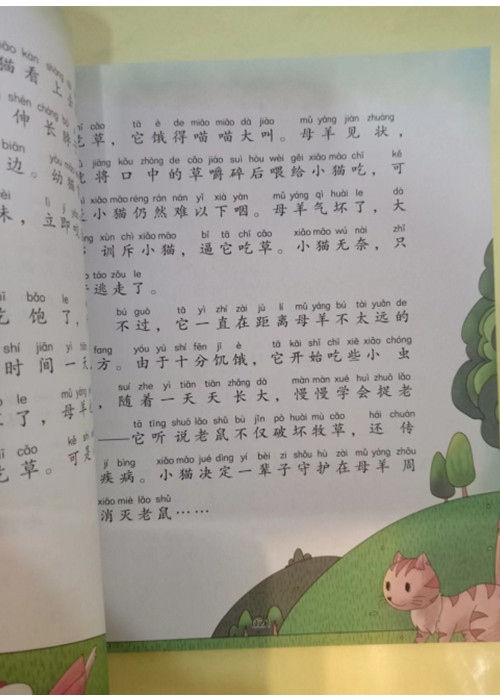 māo kàn shàng
猫看上去
shēn cháng bó
伸长脖
biān yòu māo
边。幼猫
lì jí
未，立即咬
bǎo le
吃饱了，
shí jiān yì tiān
时间一天
le mǔ yáng
了，母羊
cǎo kě shì
吃草。可是
cǎo tā è de miāo miāo dà jiào mǔ yáng jiàn zhuàng
吃草，它饿得喵喵大叫。母羊见状，
jiāng kǒu zhōng de cǎo jiáo suì hòu wèi gěi xiǎo māo chī kě
将口中的草嚼碎后喂给小猫吃，可
xiǎo māo réng rán nán yǐ xià yàn mǔ yáng qì huài le dà
小猫仍然难以下咽。母羊气坏了，大
xùn chì xiǎo māo bī tā chī cǎo xiǎo māo wú nài zhǐ
训斥小猫，逼它吃草。小猫无奈，只
táo zǒu le
逃走了。
bú guò tā yì zhí zài jù lí mǔ yáng bú tài yuǎn de
不过，它一直在距离母羊不太远的
fang yóu yú shí fēn jī è tā kāi shǐ chī xiē xiǎo chóng
方。由于十分饥饿，它开始吃些小虫
suí zhe yì tiān tiān zhǎng dà màn màn xué huì zhuō lǎo
，随着一天天长大，慢慢学会捉老
tā tīng shuō lǎo shǔ bù jǐn pò huài mù cǎo hái chuán
——它听说老鼠不仅破坏牧草，还传
jí bìng xiǎo māo jué dìng yí bèi zi shǒu hù zài mǔ yáng zhōu
疾病。小猫决定一辈子守护在母羊周
xiāo miè lǎo shǔ
消灭老鼠……